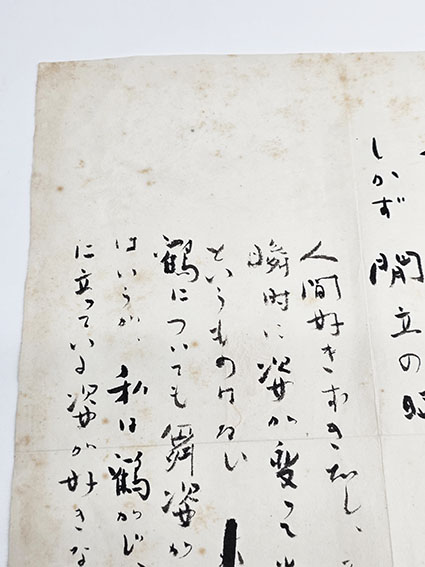 しかず 立の
人間好きずき
瞬時に姿が変って
というものはない
鶴についても舞姿が
はいうが、私は鶴がじ
に立っている姿が好きな